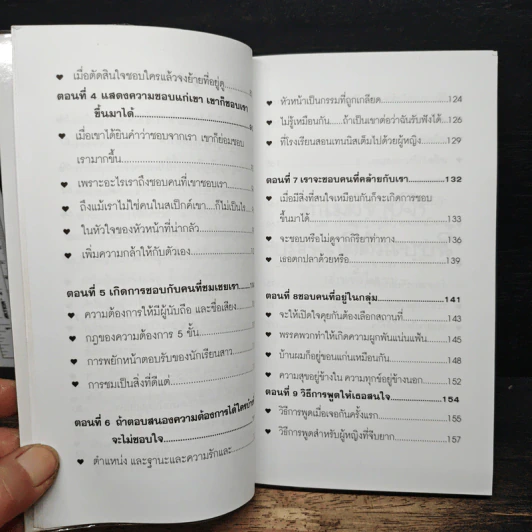 ♥ เมื่อตัดสินใจชอบใครแล้วจงย้ายที่อยู่ดู
ตอนที่ 4 แสดงความชอบแก่เขา เขาก็ชอบเรา
ขึ้นมาได้
♥ เมื่อเขาได้ยินคำว่าชอบจากเรา เขาก็ย่อมชอบ
เรามากขึ้น
♥ เพราะอะไรเราถึงชอบคนที่เขาชอบเรา
♥ ถึงแม้เราไม่ใช่คนในสเป็กค์เขา....ก็ไม่เป็นไร
♥ ในหัวใจของหัวหน้าที่น่ากลัว
♥ เพิ่มความกล้าให้กับตัวเอง
ตอนที่ 5 เกิดการชอบกับคนที่ชมเชยเรา
♥ ความต้องการให้มีผู้นับถือ และชื่อเสียง
♥ กฎของความต้องการ 5 ขั้น
♥ การพยักหน้าตอบรับของนักเรียนสาว
♥ การชมเป็นสิ่งที่ดีแต่
ตอนที่ 6 ถ้าตอบสนองความต้องการได้ใครบ้าง
จะไม่ชอบใจ
♥ ตำแหน่ง และฐานะและความรักและ
♥ หัวหน้าเป็นกรรมที่ถูกเกลียด 124
♥ ไม่รู้เหมือนกัน.....ถ้าเป็นเขาต่อว่าฉันรับฟังได้ 126
♥ ที่โรงเรียนสอนเทนนิสเต็มไปด้วยผู้หญิง 129
ตอนที่ 7 เราจะชอบคนที่คล้ายกับเรา 132
♥ เมื่อมีสิ่งที่สนใจเหมือนกันก็จะเกิดการชอบ
ขึ้นมาได้ 133
♥ จะชอบหรือไม่ดูจากกิริยาท่าทาง 136
♥ เธอตกปลาด้วยหรือ 139
ตอนที่ 8ชอบคนที่อยู่ในกลุ่ม 141
♥ จะให้เปิดใจคุยกันต้องเลือกสถานที่ 143
♥ พรรคพวกทำให้เกิดความผูกพันแน่นแฟ้น 145
♥ บ้านผมก็อยู่ขอนแก่นเหมือนกัน 148
♥ ความสุขอยู่ข้างใน ความทุกข์อยู่ข้างนอก 152
ตอนที่ 9 วิธีการพูดให้เธอสนใจ 154
♥ วิธีการพูดเมื่อเจอกันครั้งแรก 155
♥ วิธีการพูดสำหรับผู้หญิงที่จีบยาก 157